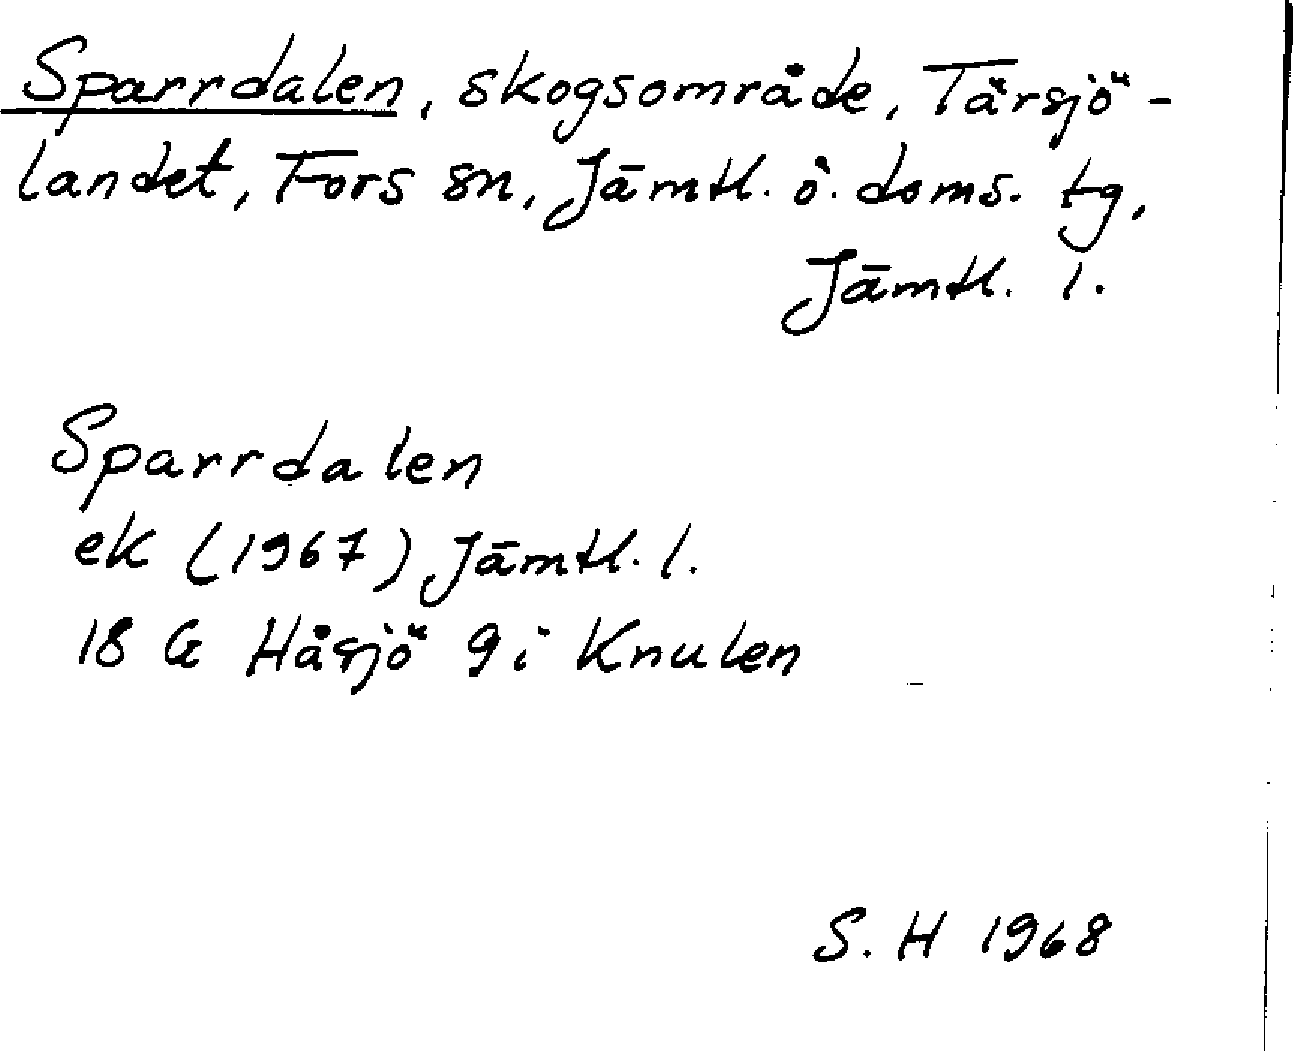 Sparrdalen, skogsområde, Tärsjö-
landet, Fors sn, Jämtl. ö. doms. tg,
Jämtl. l.
Sparrdalen
ek (1967) Jämtl. l.
18 G Håsjö 9 i Knulen
S. H 1968